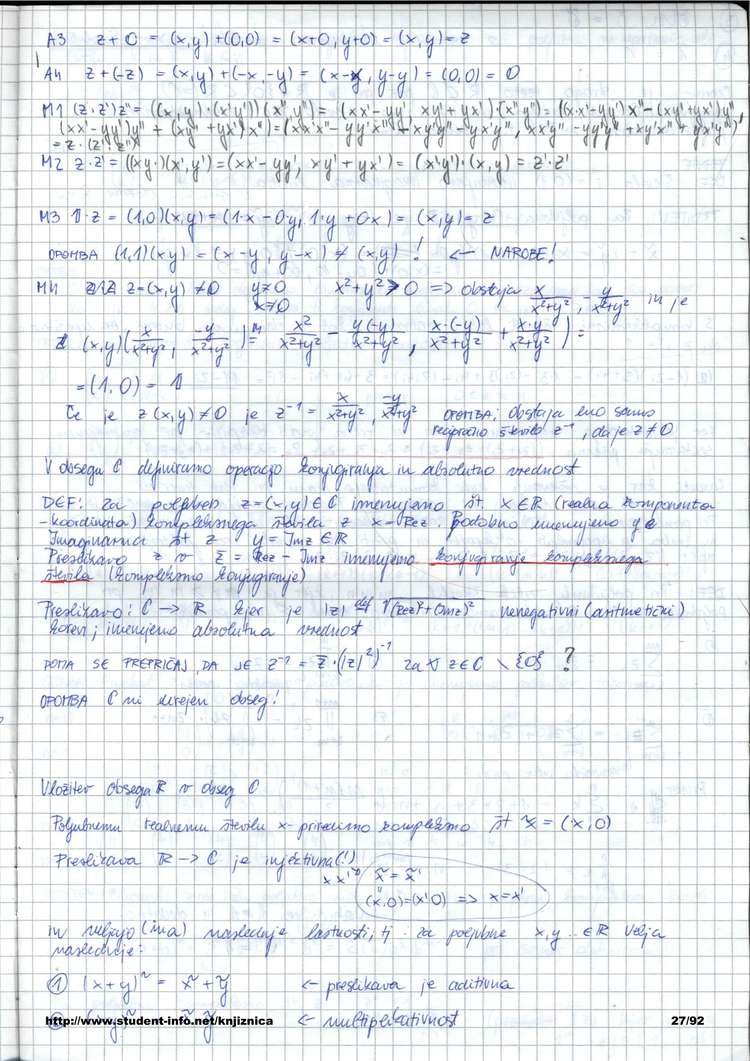 A3 z+0 = (x,y)+(0,0) = (x+0, y+0) = (x,y) = z
A4 z+(-z) = (x,y)+(-x,-y) = (x-x, y-y) = (0,0) = 0
M1 (z·z')z'' = ((x,y)·(x'y'))(x'',y'') = (xx'-yy', xy'+yx')·(x''y'') = ((xx'-yy')x''-(xy'+yx')y'',
(xx'-yy')y'' + (xy'+yx')x'') = (xx'x''-yy'x''-xy'y''-yx'y'', xx'y''-yy'y''+xy'x''+yx'x'')
= z·(z'·z'')
M2 z·z' = ((xy)·(x',y') = (xx'-yy', xy'+yx') = (x'y')·(x,y) = z'·z
M3 1·z = (1,0)(x,y) = (1·x-0·y, 1·y+0·x) = (x,y) = z
OPOMBA (1,1)(xy) = (x-y, y-x) ≠ (x,y) ! ← NAROBE!
M4 z=(x,y) ≠0 y≠0 x²+y²>0 => obstaja x/(x²+y²), -y/(x²+y²) in je
x≠0
(x,y)(x/(x²+y²), -y/(x²+y²)) = x²/(x²+y²) - y(-y)/(x²+y²), x·(-y)/(x²+y²) + x·y/(x²+y²)) =
=(1,0) = 1
Če je z(x,y)≠0 je z⁻¹ = x/(x²+y²), -y/(x²+y²) OPOMBA: obstaja eno samo
recipročno število z⁻¹, da je z≠0
V obsegu C definiramo operacijo konjugiranja in absolutno vrednost
DEF: Za poljuben z=(x,y)∈C imenujemo št x∈R (realna komponenta
-koordinata) kompleksnega števila z x=Rez. Podobno imenujemo y
Imaginarna št z y=Imz∈R
Preslikavo z v z̄ = Rez - Imz imenujemo konjugiranje kompleksnega
števila (kompleksno konjugiranje)
Preslikavo: C → R kjer je |z| def √(Rez)²+(Imz)² nenegativni (aritmetični)
koren; imenujemo absolutna vrednost
DOMA SE PREPRIČAJ, DA JE z⁻¹ = z̄·(|z|²)⁻¹ za ∀ z∈C \ {0} ?
OPOMBA C ni urejen obseg!
Vložitev obsega R v obseg C
Poljubnemu realnemu številu x priredimo kompleksno št x̃ = (x,0)
Preslikava R → C je injektivna(!)
x x' x̃ = x̃'
(x,0)=(x'0) => x=x'
in veljajo (ima) naslednje lastnosti; tj. za poljubne x,y.. ∈R velja
naslednje:
① (x+y)~ = x̃+ỹ ← preslikava je aditivna
http://www.student-info.net/knjiznica ← multiplikativnost 27/92